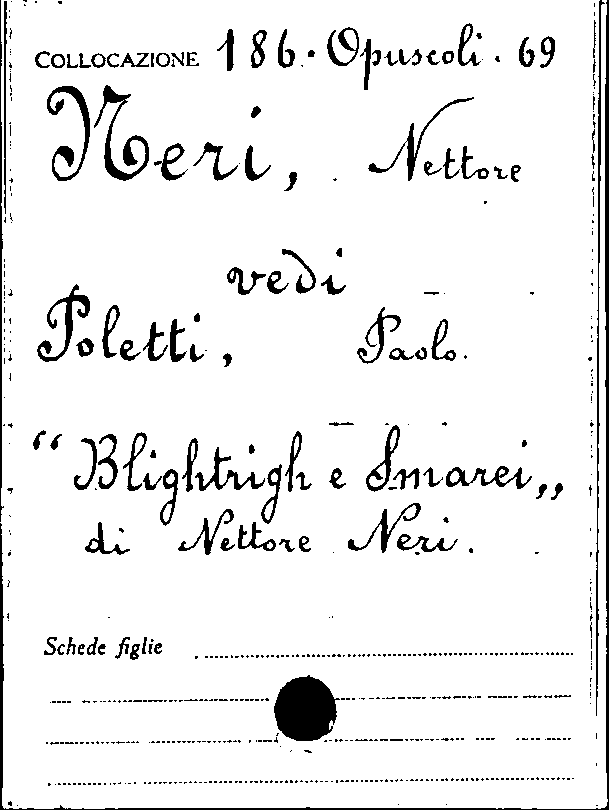 COLLOCAZIONE 186. Opuscoli. 69
Neri, Nettore
vedi
Poletti, Paolo.
“Blightrigh e Smarei„
di Nettore Neri.
Schede figlie